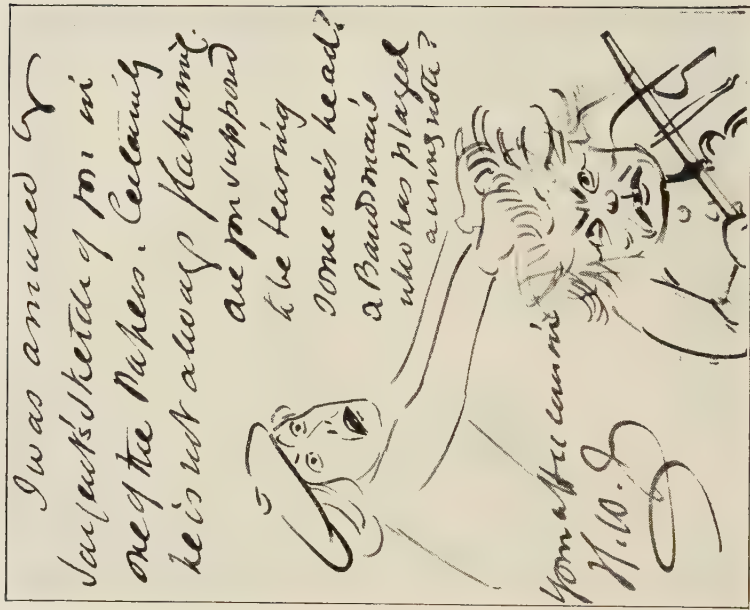 I was amused by
Sargent's sketch of you in
one of the Papers. Certainly
he is not always flattering.
are you supposed
to be tearing
some one's head?
a Bandman's
who has played
a wrong note?
Your affec cousin
H. W. J.